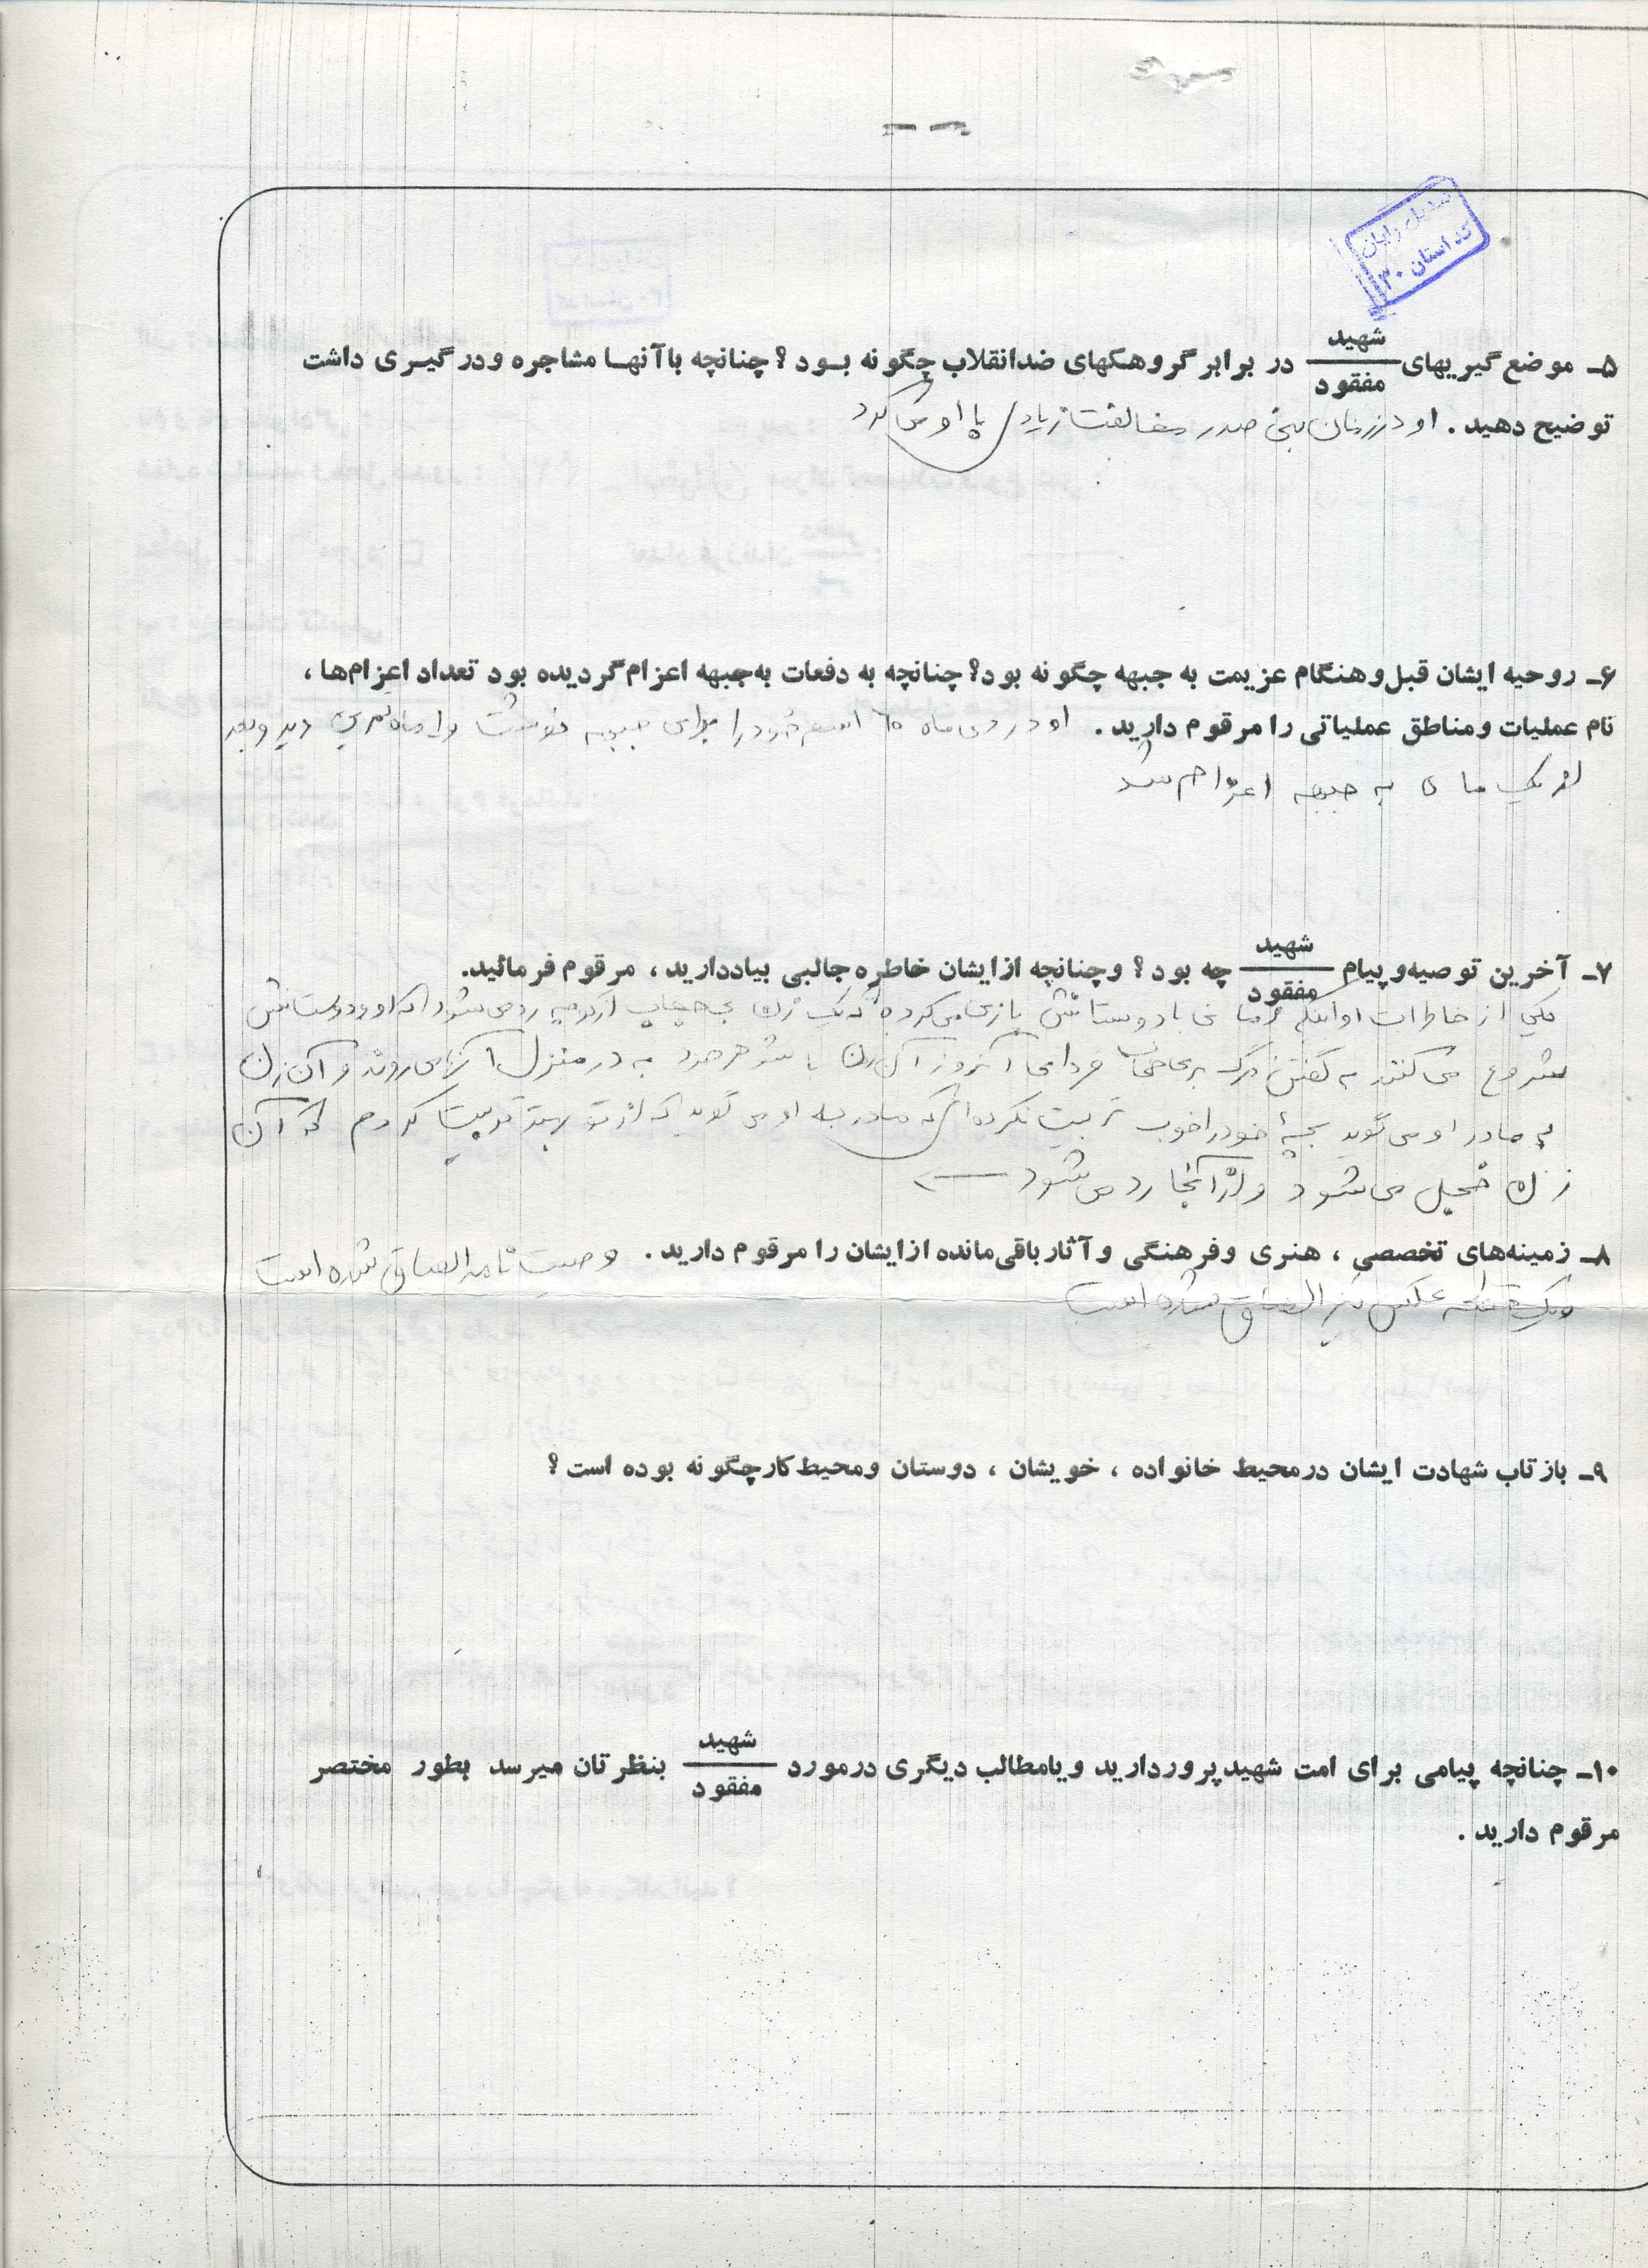 تبدیل رایان
کد استان ۳۰
۵ـ موضع گیریهای شهید / مفقود در برابر گروهکهای ضدانقلاب چگونه بود؟ چنانچه با آنها مشاجره ودرگیری داشت
توضیح دهید. او در زمان بنی صدر مخالفت زیادی با او می‌کرد
۶ـ روحیه ایشان قبل وهنگام عزیمت به جبهه چگونه بود؟ چنانچه به دفعات به‌جبهه اعزام گردیده بود تعداد اعزام‌ها،
نام عملیات ومناطق عملیاتی را مرقوم دارید. او در دی ماه ۶۰ اسم خود را برای جبهه نوشت و ماه تمرین دید و بعد
از یک ماه به جبهه اعزام شد
۷ـ آخرین توصیه‌وپیام شهید / مفقود چه بود؟ وچنانچه ازایشان خاطره جالبی بیاددارید، مرقوم فرمائید.
یکی از خاطرات او اینکه زمانی با دوستانش بازی می‌کرده که یک زن بی حجاب از کوچه رد می‌شود که او و دوستانش
شروع می کنند به گفتن مرگ بر بی حجاب فردای آنروز آن زن با شوهر خود به در منزل آنها می روند و آن زن
به مادر او می گوید بچهٔ خود را خوب تربیت نکرده‌ای که مادر به او می گوید که از تو بهتر تربیت کردم که آن
زن خجل می شود و از آنجا رد می شود
۸ـ زمینه‌های تخصصی، هنری وفرهنگی وآثار باقی‌مانده ازایشان را مرقوم دارید. وصیت نامه الصاق شده است
ویک قطعه عکس نیز الصاق شده است
۹ـ بازتاب شهادت ایشان درمحیط خانواده، خویشان، دوستان ومحیط کارچگونه بوده است؟
۱۰ـ چنانچه پیامی برای امت شهیدپروردارید ویامطالب دیگری درمورد شهید / مفقود بنظرتان میرسد بطور مختصر
مرقوم دارید.